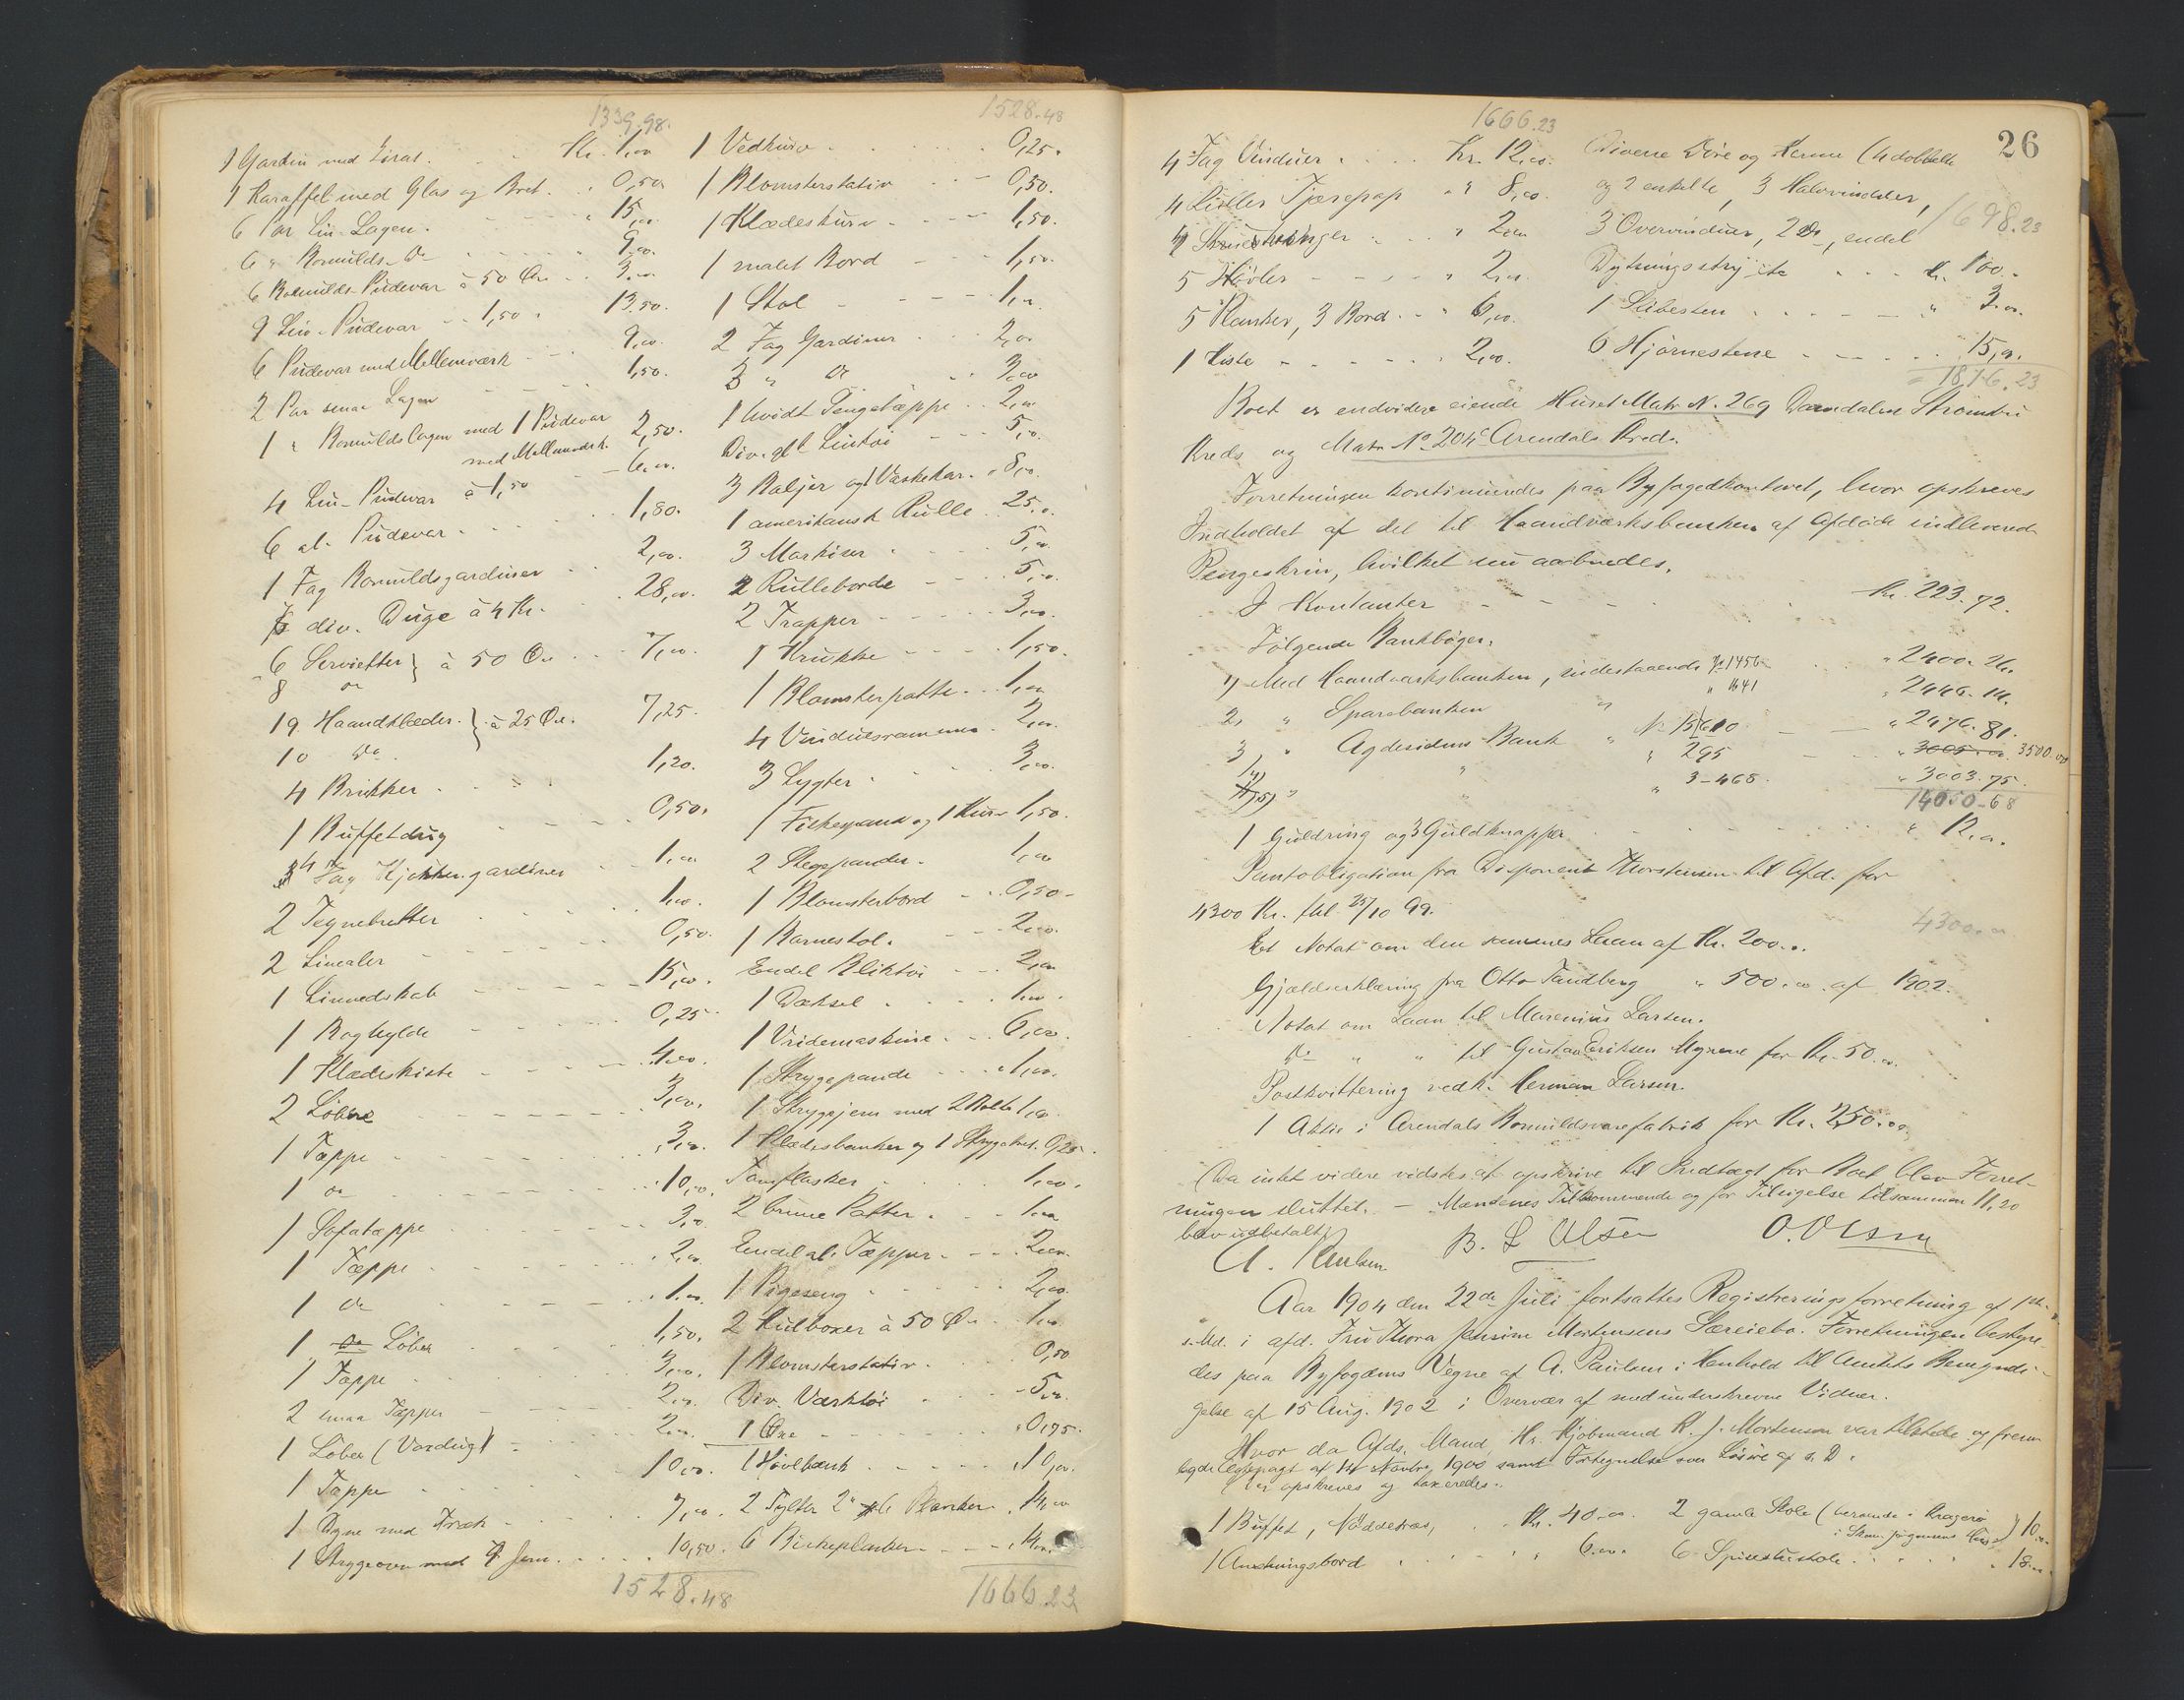 1339.98.
1 Gardin med Kr. 1,00
1 Karaffel med Glas og Bret. 0,50
6 Par Lin-Lagen. 15,00
6 " Bomulds-Do 9,00.
6 Bomulds-Pudevar à 50 Øre 3,00
9 Lin-Pudevar 1,50 13.50.
6 Pudevar med Mellemværk 9,00.
2 Par Lagen 1,50.
1 " Bomuldslagen med 1 Pudevar
med Mellemværk 2,50.
4 Lin-Pudevar à 1,50 6,00.
6 al. Pudevar 1,80.
1 Fag Bomuldsgardiner 2,00.
7 div. Duge à 4 Kr. 28,00.
6 Servietter } à 50 Øre 7,00.
8 do
19 Haandklæder } à 25 Øre. 7,25
10 Do
4 Brikker 1,20.
1 Buffetdug 0,50.
4 Fag Kjøkkengardiner 1,00
2 Tegnebretter 1,00.
2 Linealer 0,50.
1 Linnedskab 15,00.
1 Boghylde 0,25
1 Klædeskiste 4,00.
2 Løbere 3,00.
1 Tæppe 3,00.
1 do 10,00.
1 Sofatæppe 3,00
1 Tæppe 2,00
1 do 1,00.
1 Løber 1,50.
1 Tæppe 3,00.
2 smaa Tæpper 2,00.
1 Løber (Voxdug) 2,00.
1 Tæppe 10,00.
1 Dyne med Træk 7,00
1 Strygeovn med 9 Jern. 10,50.
1528.48
1528.48
1 Vedkurv 0,25.
1 Blomsterstativ 0,50.
1 Klædeskurv 1,50.
1 malet Bord 1,50.
1 Stol 1,00
2 Fag Gardiner 2,00
3 " do 3,00
1 hvidt Sengetæppe 2,00
Div. gl. Lintøi 5,00.
3 Baljer og 1 Vaskekar. 8,00.
1 amerikansk Rulle 25,00.
3 Markiser 5,00.
2 Rulleborde 5,00.
2 Trapper 3,00.
1 Krukke 1,50.
1 Blomsterpotte 1,00
4 Vinduesrammer 2,00.
3 Lygter 3,00.
1 Fiskepande og 1 Kurv 1,50.
2 Stegepander. 1,00
1 Blomsterbord 0,50
1 Barnestol. 2,00.
Endel Bliktøi 2,00
1 Dæksel 1,00.
1 Vridemaskine 6,00.
1 Strygepande 1,00.
1 Strygejern med 2 Bolte 1,00
1 Klædesbanker og 1 Strygebret. 0,25.
Tomflasker 1,00.
2 brune Potter 1,00
Endel al. Tæpper 2,00.
1 Pigeseng 2,00.
2 Kulboxer à 50 Øre 1,00
1 Blomsterstativ 0,50
Div. Værktøi 5,00.
1 Øxe 0,75.
1 Høvlbænk 10,00.
2 Tylter 2" Planker 14,00
6 Birkeplanker 14,00
1666.23
26
1666.23
4 Fag Vinduer Kr. 12,00.
4 Ruller Tjærepap " 8,00.
4 Skruetvinger " 2,00
5 Høvler " 2,00.
5 Planker, 3 Bord " 6,00.
1 Kiste 2,00.
Diverse Døre og Karme (4 dobbelte
og 2 enkelte, 3 Halvvinduer,
3 Overvinduer, 2 Do, endel
1698.23
kr. 100.
1 Slibesten " 3.00.
6 Hjørnestene 15,00.
1816.23
Boet er endvidere eiende Huset Matr N. 269 Strømbu
Kreds og Matr No 204c Arendals Kreds.
Forretningen kontinuerdes paa Byfogedkontoret, hvor opskreves
Indholdet af det til Haandværksbanken af Afdøde indleverede
Pengeskrin, hvilket nu aabnedes.
I Kontanter Kr. 223.72.
Følgende Bankbøger.
1) Med Haandværksbanken, indestaaende No 1456 " 2400.26.
2, " Sparebanken " " 1641 " 2446.14.
3, " Agdesidens Bank " No 15610 " 2476.81.
4) " " " 295 " 3005.00 3500.00
5) " " " 3-468. " 3003.75.
14050-68
1 Guldring og 3 Guldknapper " 12,00.
Pantobligation fra Disponent Thorstensen til Afd. for
4300 Kr. thl. 25/10 99. 4300.00
Et Notat om den sammes Laan af Kr. 200.00.
Gjældserklæring fra Otto Tandberg " 500.00. af 1902.
Notat om Laan til Marenius Larsen.
Do " " til Gustav Eriksen Myrene for Kr. 50.00.
Postkvittering vedk. Herman Larsen.
1 Aktie i Arendals Bomuldsvarefabrik for Kr. 250.00.
Da intet videre vidstes at opskrive til Indtægt for Boet blev Forret-
ningen sluttet. — Mændenes Tilkommende og for Tilsigelse tilsammen 11,20
blev udbetalt.
A. Paulsen B. L Olsen O. Olsen
Aar 1904 den 22de Juli fortsattes Registreringsforretning af
s. Md. i afd. Fru Thora Jensine Mortensens Særeiebo. Forretningen bestyre-
des paa Byfogdens Vegne af A. Paulsen i Henhold til Amtets Bemyndi-
gelse af 15 Aug. 1902 i Overvær af medunderskrevne Vidner.
Hvor da Afds. Mand, Hr. Kjøbmand K. J. Mortensen var tilstede og frem-
lagde Ægtepagt af 14 Novbr. 1900 samt Fortegnelse over Løsøre af s. D.
opskreves og taxeredes.
1 Buffet, Nøddetræs, Kr. 40.00.
1 Anretningsbord " 6.00.
2 gamle Stole (beroende i Kragerø
i Skom. Jørgensens Hus) 10.00
6 Spisestuestole " 18.00.